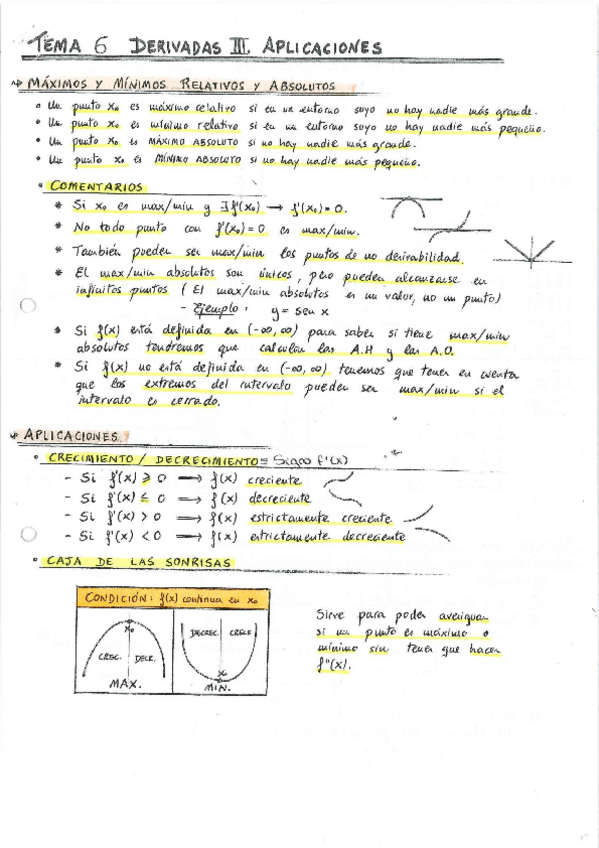 TEMA 6 DERIVADAS III. APLICACIONES
MÁXIMOS Y MÍNIMOS RELATIVOS Y ABSOLUTOS
• Un punto x₀ es máximo relativo si en un entorno suyo no hay nadie más grande.
• Un punto x₀ es mínimo relativo si en un entorno suyo no hay nadie más pequeño.
• Un punto x₀ es MÁXIMO ABSOLUTO si no hay nadie más grande.
• Un punto x₀ es MÍNIMO ABSOLUTO si no hay nadie más pequeño.
• COMENTARIOS
* Si x₀ es max/min y ∃ f'(x₀) → f'(x₀) = 0.
* No todo punto con f'(x₀) = 0 es max/min.
* También pueden ser max/min los puntos de no derivabilidad.
* El max/min absolutos son únicos, pero pueden alcanzarse en
infinitos puntos (El max/min absolutos es un valor, no un punto)
- Ejemplo: y = sen x
* Si f(x) está definida en (-∞, ∞) para saber si tiene max/min
absolutos tendremos que calcular las A.H y las A.O.
* Si f(x) no está definida en (-∞, ∞) tenemos que tener en cuenta
que los extremos del intervalo pueden ser max/min si el
intervalo es cerrado.
APLICACIONES:
• CRECIMIENTO / DECRECIMIENTO = Signo f'(x)
- Si f'(x) ⩾ 0 ⟹ f(x) creciente
- Si f'(x) ≤ 0 ⟹ f(x) decreciente
- Si f'(x) > 0 ⟹ f(x) estrictamente creciente
- Si f'(x) < 0 ⟹ f(x) estrictamente decreciente
• CAJA DE LAS SONRISAS
CONDICIÓN: f(x) continua en x₀
x₀
CREC. DECR.
MAX.
DECREC. CREC
x₀
MIN.
Sirve para poder averiguar
si un punto es máximo o
mínimo sin tener que hacer
f''(x).